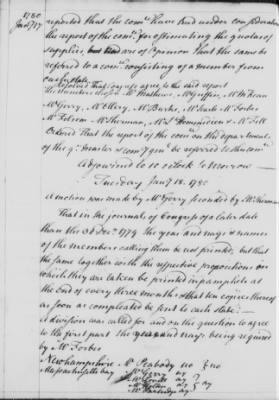 1780
Jany 17
reported that the comee have had under consideration
the report of the comee for estimating the quotas of
supplies, and are of opinion that the same be
referred to a comee consisting of a member from
each state
Resolved that Congress agree to the said report
The members chosen Mr Mr Griffin, Mr McKean
Mr Gerry, Mr Ellery, Mr Burke, Mr Forbes
Mr Folsom Mr Sherman, Mr Houstoun & Mr Fell
Ordered that the report of the comee on the departments
of the qr master & comy genl be referred to the comee
Adjourned to 10 o Clock to Morrow
Tuesday Jany 18. 1780
A motion was made by Mr Gerry seconded by Mr Sherman
That in the journals of Congress of a later date
than the 31 Decr 1779 the yeas and nays & names
of the members calling them be not printed, but that
the same together with the respective propositions on
which they are taken be printed in pamphlets at
the end of every three months & that ten copies thereof
as soon as compleated be sent to each state:
A division was called for and on the question to agree
to the first part the yeas and nays being required
by Mr Forbes
Newhampshire Mr Peabody no } no
Massachusetts bay Mr Gerry ay
Mr Lovell ay
Mr Holten ay } ay
Mr Partridge ay